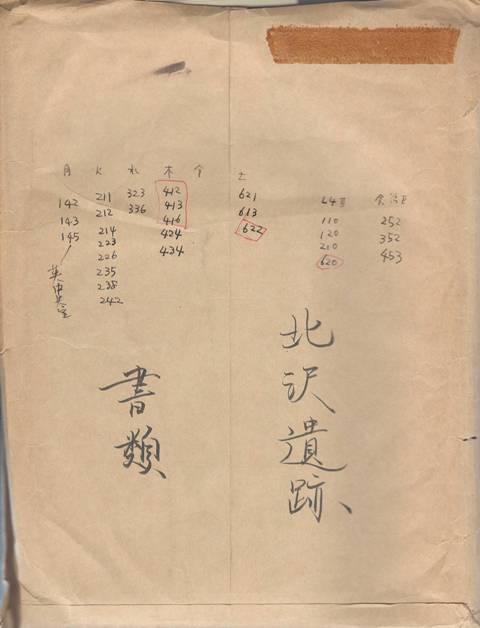 月 火 水 木 金 土
142 211 323 412 621
143 212 336 413 613
145 214 416 622
223 424
226 434
235
238
242
110 252
120 352
210 453
620
北沢遺跡、
書類、